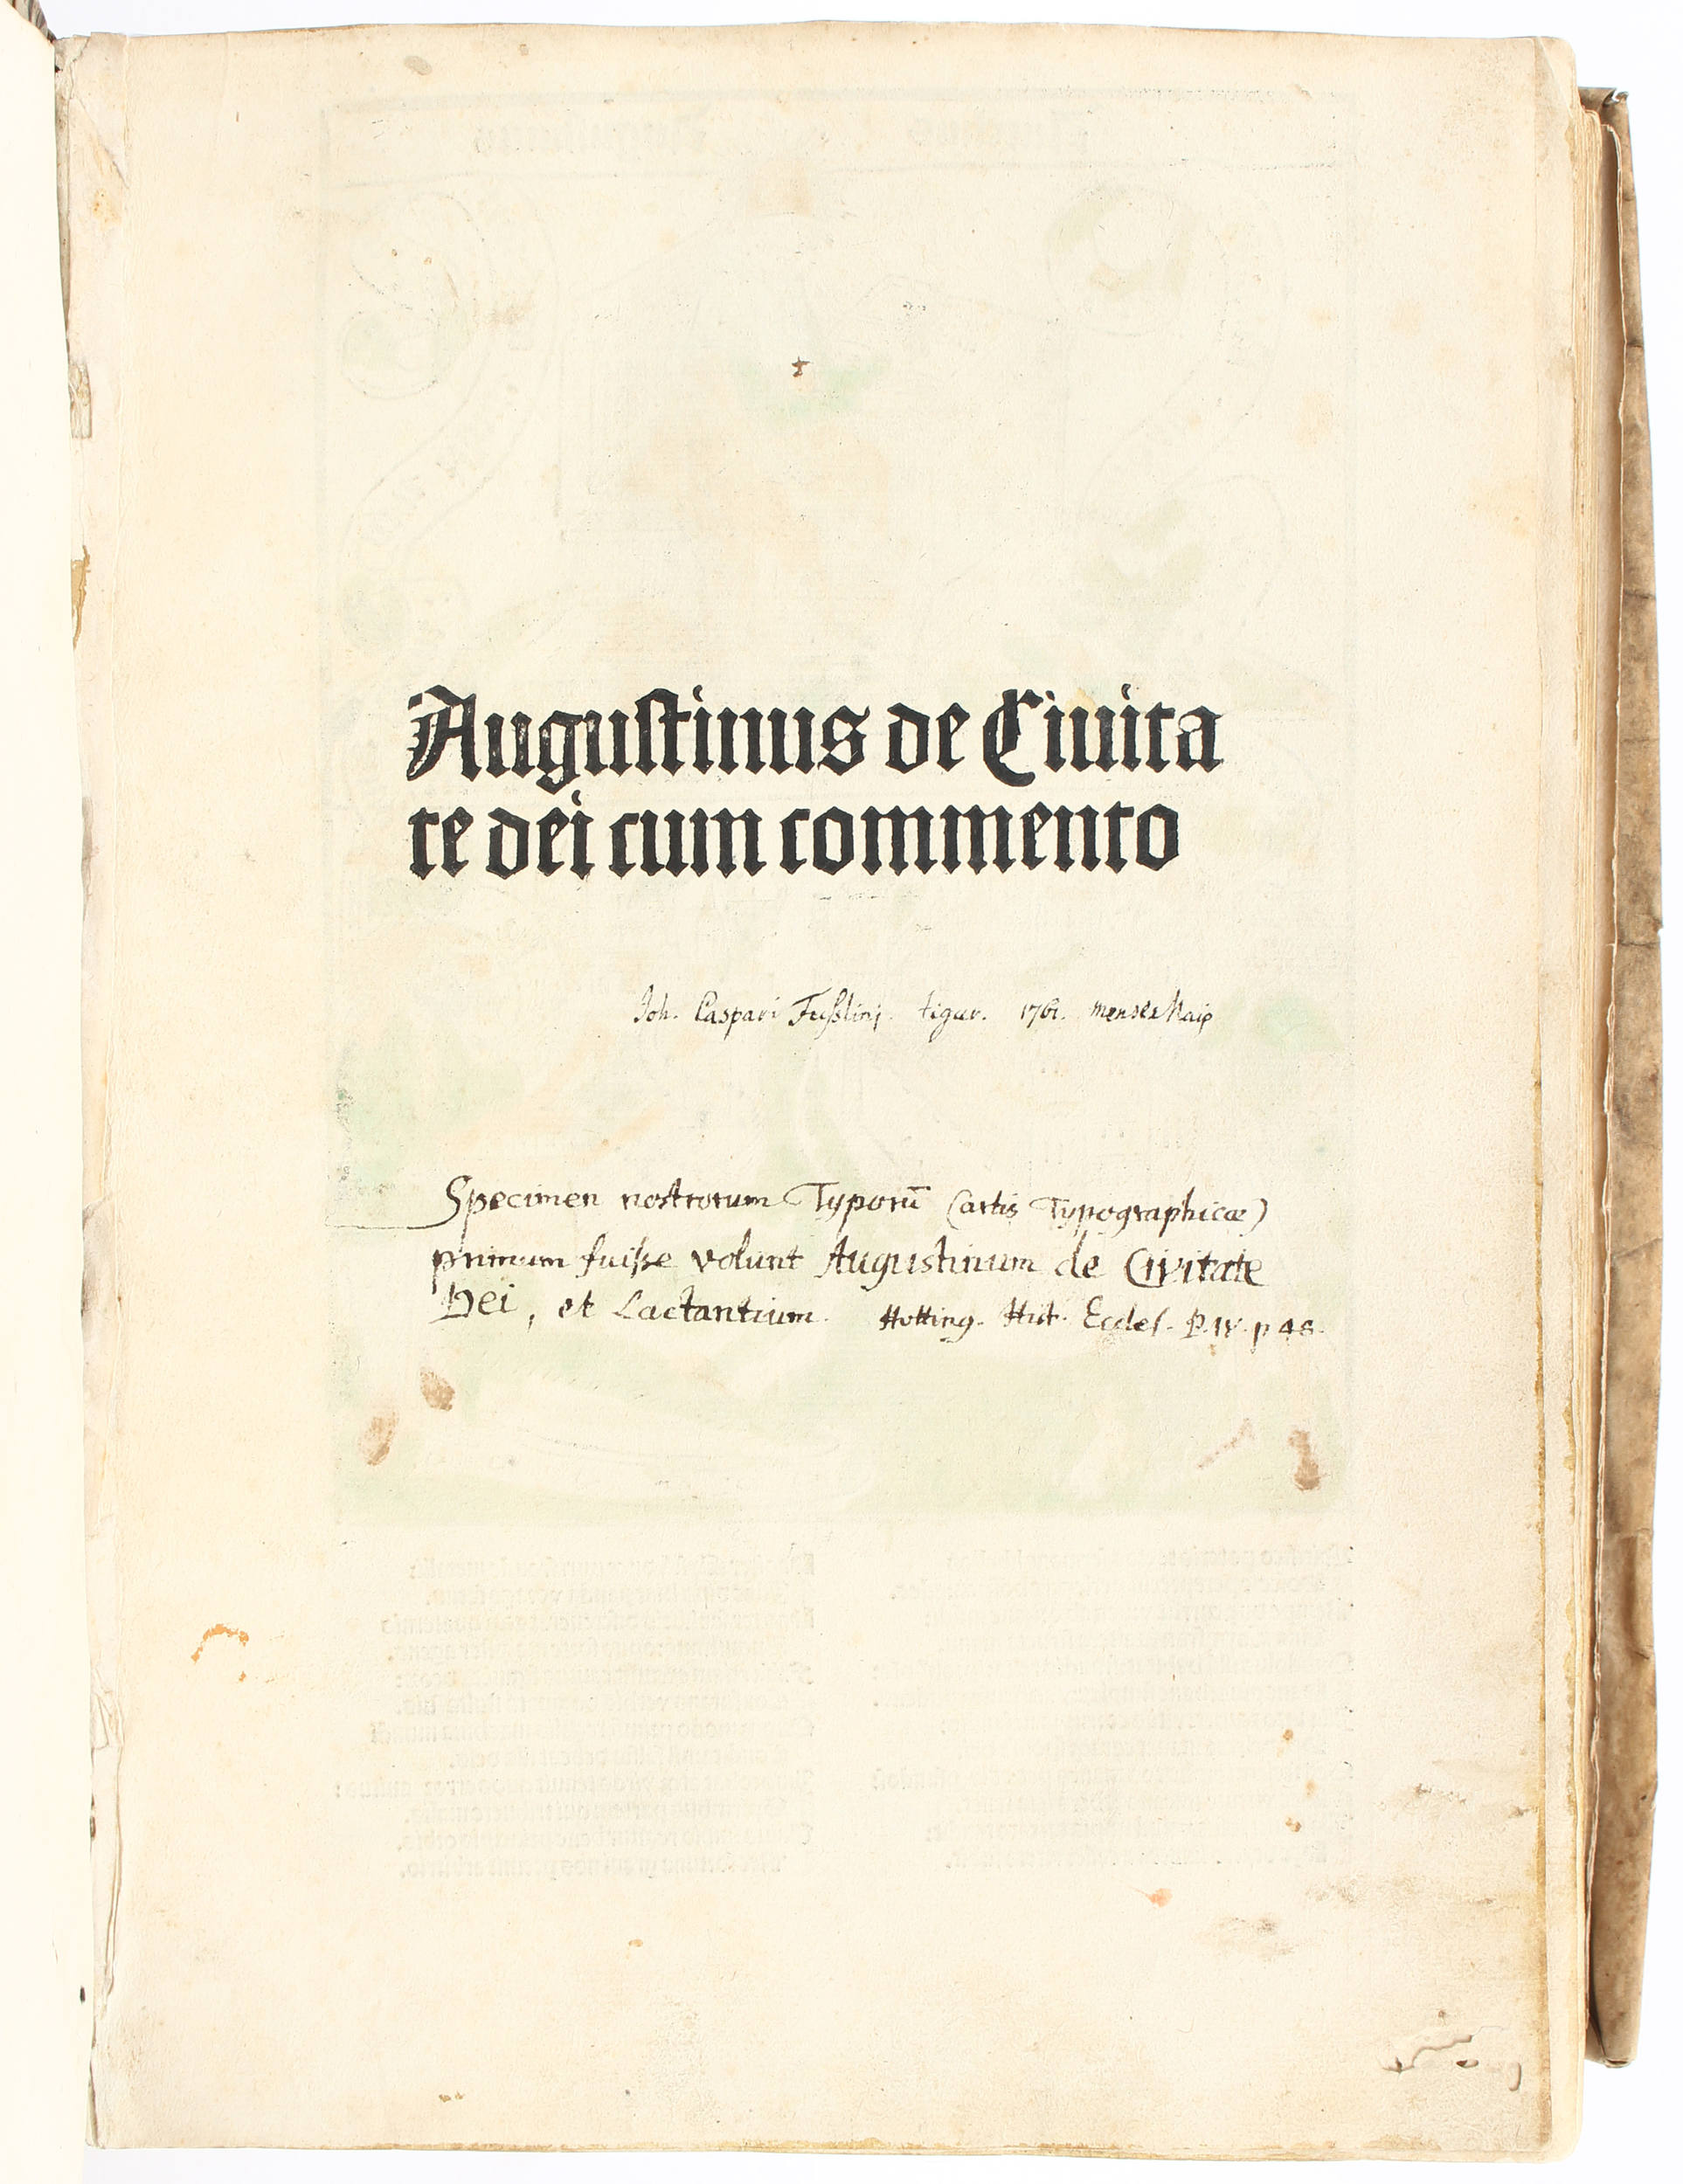 Augustinus de Ciuita
te dei cum commento
Joh. Caspari Fueßlinj. tigur. 1761. mense Maio
Specimen nostrorum Typorū (artis Typographicæ)
primum fuiße volunt Augustinum de Civitate
Dei, et Lactantium. Hotting. Hist. Eccles. P. IV. p 48.